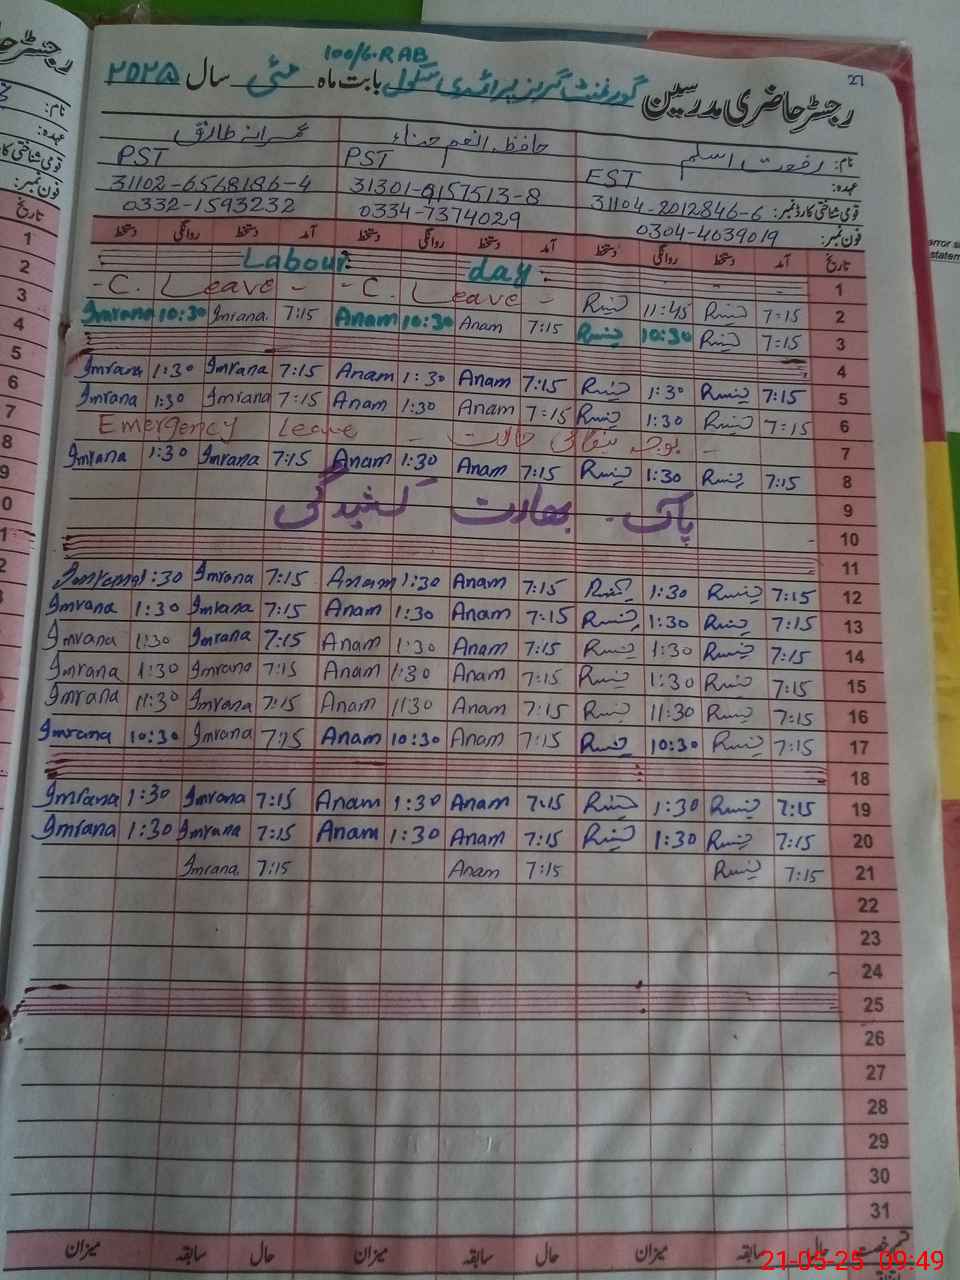 100/6.RAB
21
رجسٹر حاضری مدرسین گورنمنٹ گرلز پرائمری سکول بابت ماہ مئی سال ۲۰۲۵
نام: رفعت اسلم حافظہ انعم حناء عمرانہ طارق
عہدہ: EST PST PST
قومی شناختی کارڈ نمبر: 31104-2012846-6 31301-9157513-8 31102-6568186-4
فون نمبر: 0304-4039019 0334-7374029 0332-1593232
تاریخ آمد دستخط روانگی دستخط آمد دستخط روانگی دستخط آمد دستخط روانگی دستخط
1 Labour day
2 7:15 11:45 - C. Leave - - C. Leave -
3 7:15 10:30 7:15 Anam 10:30 Anam 7:15 Imrana 10:30 Imrana
4
5 7:15 1:30 7:15 Anam 1:30 Anam 7:15 Imrana 1:30 Imrana
6 7:15 1:30 7:15 Anam 1:30 Anam 7:15 Imrana 1:30 Imrana
7 Emergency Leave - بوجہ جنگی حالات -
8 7:15 1:30 7:15 Anam 1:30 Anam 7:15 Imrana 1:30 Imrana
9 پاک - بھارت کشیدگی
10
11
12 7:15 1:30 7:15 Anam 1:30 Anam 7:15 Imrana 1:30 Imrana
13 7:15 1:30 7:15 Anam 1:30 Anam 7:15 Imrana 1:30 Imrana
14 7:15 1:30 7:15 Anam 1:30 Anam 7:15 Imrana 1:30 Imrana
15 7:15 1:30 7:15 Anam 1:30 Anam 7:15 Imrana 1:30 Imrana
16 7:15 11:30 7:15 Anam 11:30 Anam 7:15 Imrana 11:30 Imrana
17 7:15 10:30 7:15 Anam 10:30 Anam 7:15 Imrana 10:30 Imrana
18
19 7:15 1:30 7:15 Anam 1:30 Anam 7:15 Imrana 1:30 Imrana
20 7:15 1:30 7:15 Anam 1:30 Anam 7:15 Imrana 1:30 Imrana
21 7:15 7:15 Anam 7:15 Imrana
22
23
24
25
26
27
28
29
30
31
حال سابقہ میزان حال سابقہ میزان حال سابقہ میزان
21-05-25 09:49